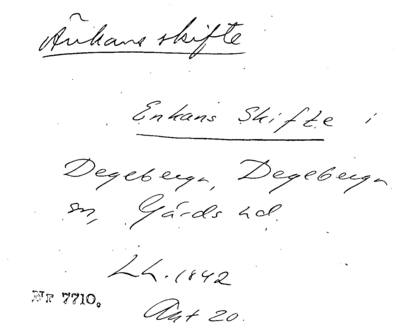 Änkans skifte
Enkans Skifte i
Degeberga, Degeberga
sn, Gärds hd.
Lh. 1842
Nr 7710.
Akt 20.